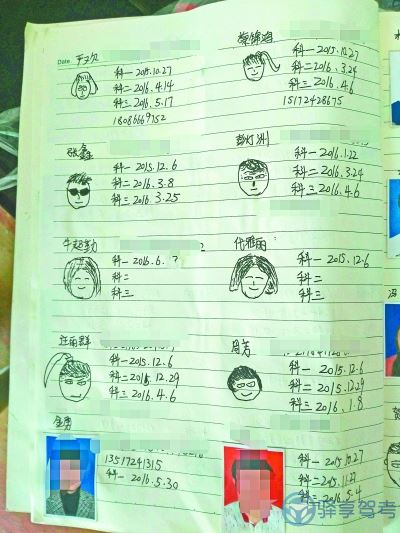 Date
科一 2015.10.27
科二 2016.4.14
科三 2016.5.17
18086669752
科一 2015.10.27
科二 2016.3.24
科三 2016.4.6
15172428675
张鑫
科一 2015.12.6
科二 2016.3.8
科三 2016.3.25
彭灯洲
科一 2016.1.22
科二 2016.3.24
科三 2016.4.6
牛超勤
科一 2016.6.?
科二
科三
代雅丽
科一 2015.12.6
科二
科三
汪丽群
科一 2015.12.6
科二 2015.12.29
科三 2016.4.6
周芳
科一 2015.12.6
科二 2015.12.29
科三 2016.1.8
金勇
13517241315
科一 2016.5.30
科一 2015.10.27
科二 2015.11.27
科三 2016.5.4
驿享驾考